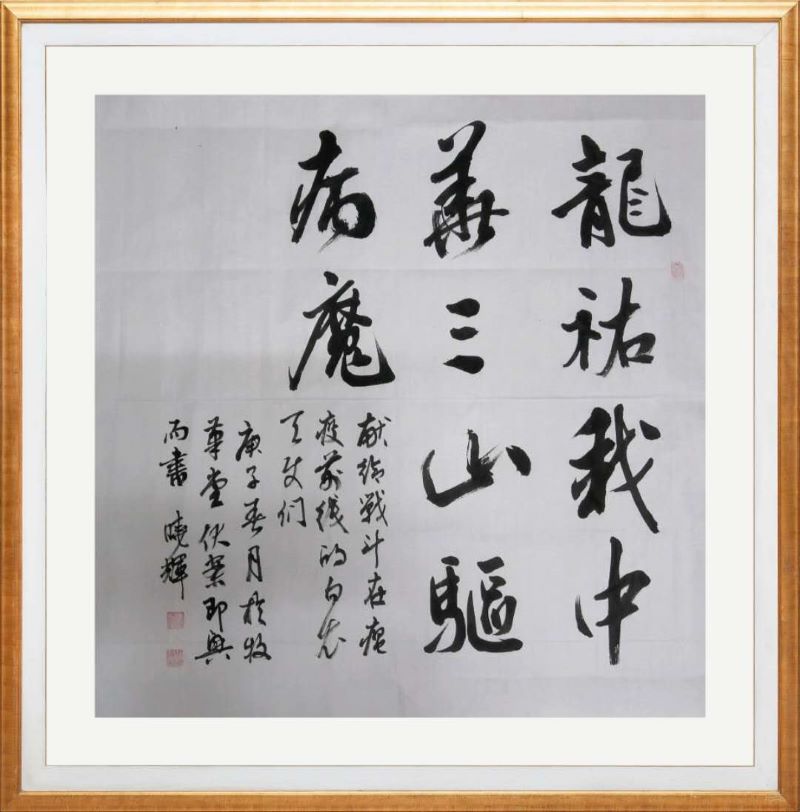 龍祐我中
華三山驅
病魔
献给戰斗在瘟
疫前线的白衣
天使们
庚子春月於牧
草堂伏案即興
而書 曉輝